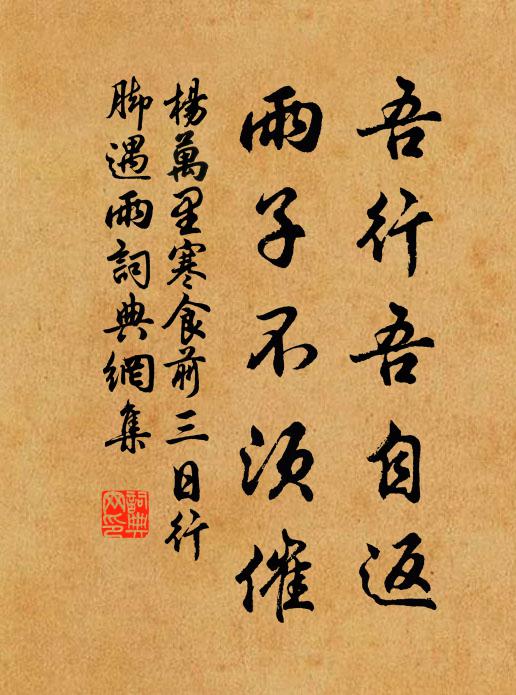 吾行吾自返
雨子不須催
楊萬里寒食前三日行
脚遇雨詞典網集
詞典網印